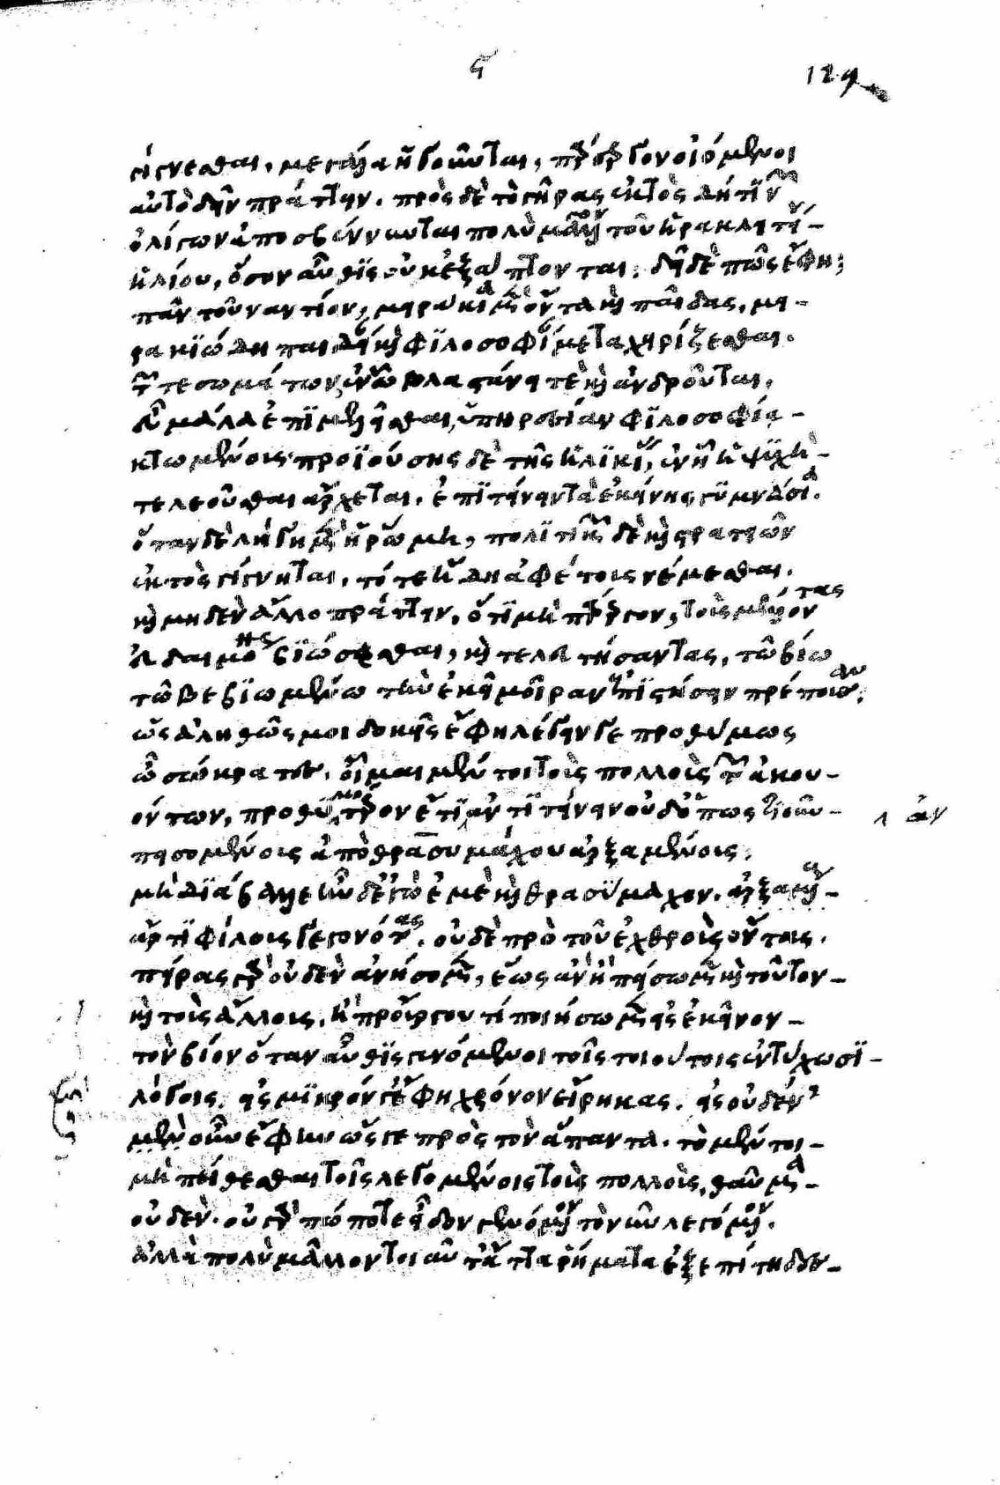 ς 129
γίγνεσθαι, μεγάλα ἡγοῦνται, πάρεργον οἰόμενοι
αὐτὸ δεῖν πράττειν. πρὸς δὲ τὸ γῆρας ἐκτὸς δή τινων
ὀλίγων ἀποσβέννυνται πολὺ μᾶλλον τοῦ ἡρακλειτεί-
ου ἡλίου, ὅσον αὖθις οὐκ ἐξάπτονται. δεῖ δὲ πῶς ἔφη;
πᾶν τοὐναντίον, μειράκια μὲν ὄντα καὶ παῖδας, μει-
ρακιώδη παιδείαν καὶ φιλοσοφίαν μεταχειρίζεσθαι.
τῶν τε σωμάτων, ἐν ᾧ βλαστάνει τε καὶ ἀνδροῦται,
εὖ μάλα ἐπιμελεῖσθαι, ὑπηρεσίαν φιλοσοφίᾳ
κτωμένους· προϊούσης δὲ τῆς ἡλικίας, ἐν ᾗ ἡ ψυχὴ
τελεοῦσθαι ἄρχεται, ἐπιτείνειν τὰ ἐκείνης γυμνάσια.
ὅταν δὲ λήγῃ μὲν ἡ ῥώμη, πολιτικῶν δὲ καὶ στρατειῶν
ἐκτὸς γίγνηται, τότε ἤδη ἀφέτους νέμεσθαι.
καὶ μηδὲν ἄλλο πράττειν, ὅτι μὴ πάρεργον, τοὺς μέλλοντας
εὐδαιμόνως βιώσεσθαι, καὶ τελευτήσαντας, τῷ βίῳ
τῷ βεβιωμένῳ τὴν ἐκεῖ μοῖραν ἐπιστήσειν πρέπουσαν.
ὡς ἀληθῶς μοι δοκεῖς ἔφη λέγειν γε προθύμως
ὦ σώκρατες. οἶμαι μέντοι τοὺς πολλοὺς τῶν ἀκου-
όντων, προθυμότερον ἔτι ἀντιτείνειν οὐδ' ὁπωστιοῦν
πεισομένους ἀπὸ θρασυμάχου ἀρξαμένους.
ἂν
μὴ διάβαλλε ἦν δ' ἐγὼ ἐμὲ καὶ θρασύμαχον. ἄρτι
ἄρτι φίλους γεγονότας. οὐδὲ πρὸ τοῦ ἐχθροὺς ὄντας.
πείρας γὰρ οὐδὲν ἀνήσομεν, ἕως ἂν ἢ πείσωμεν καὶ τοῦτον
καὶ τοὺς ἄλλους, ἢ προὔργου τι ποιήσωμεν εἰς ἐκεῖνον
τὸν βίον ὅταν αὖθις γενόμενοι τοῖς τοιούτοις ἐντύχωσι
λόγοις. εἰς μικρόν γ' ἔφη χρόνον εἴρηκας. εἰς οὐδέν
μὲν οὖν ἔφην ὥς γε πρὸς τὸν ἅπαντα. τὸ μέντοι
μὴ πείθεσθαι τοῖς λεγομένοις τοὺς πολλοὺς, θαῦμα
οὐδέν. οὐ γὰρ πώποτε εἶδον γενόμενον τὸ νῦν λεγόμενον.
ἀλλὰ πολὺ μᾶλλον τοιαῦτ' ἄττα ῥήματα ἐξεπίτηδες